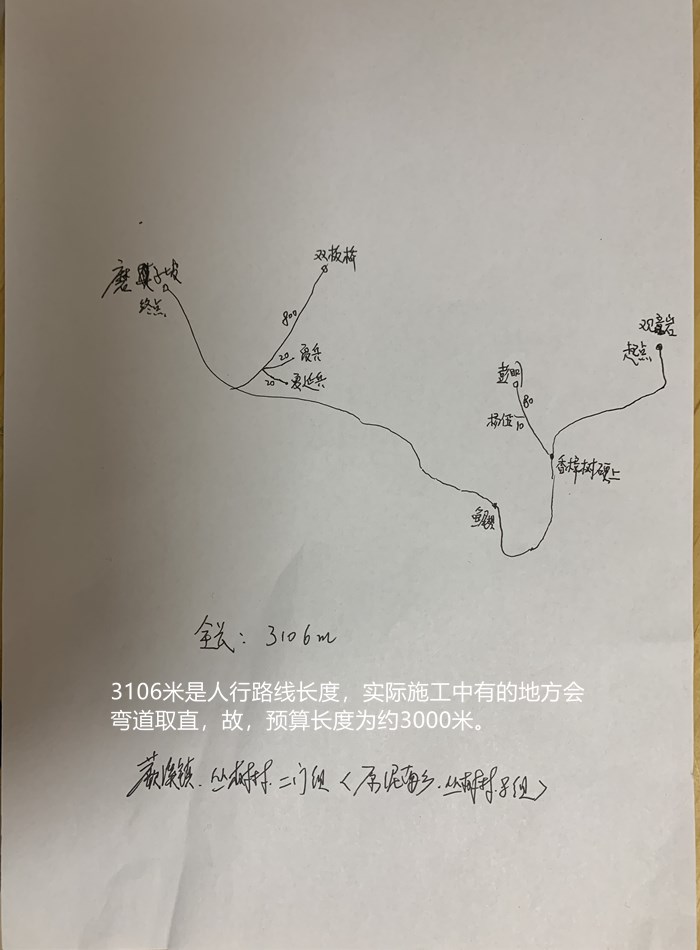 双板桥
磨子坡
终点
800
观音岩
20 夏兵
起点
20 夏延兵
彭明
80
杨伍
10
香樟树硬上
鱼塘
全长：3106m
3106米是人行路线长度，实际施工中有的地方会
弯道取直，故，预算长度为约3000米。
蕨溪镇.丛树村.二门组〈原泥南乡.丛树村.8组〉